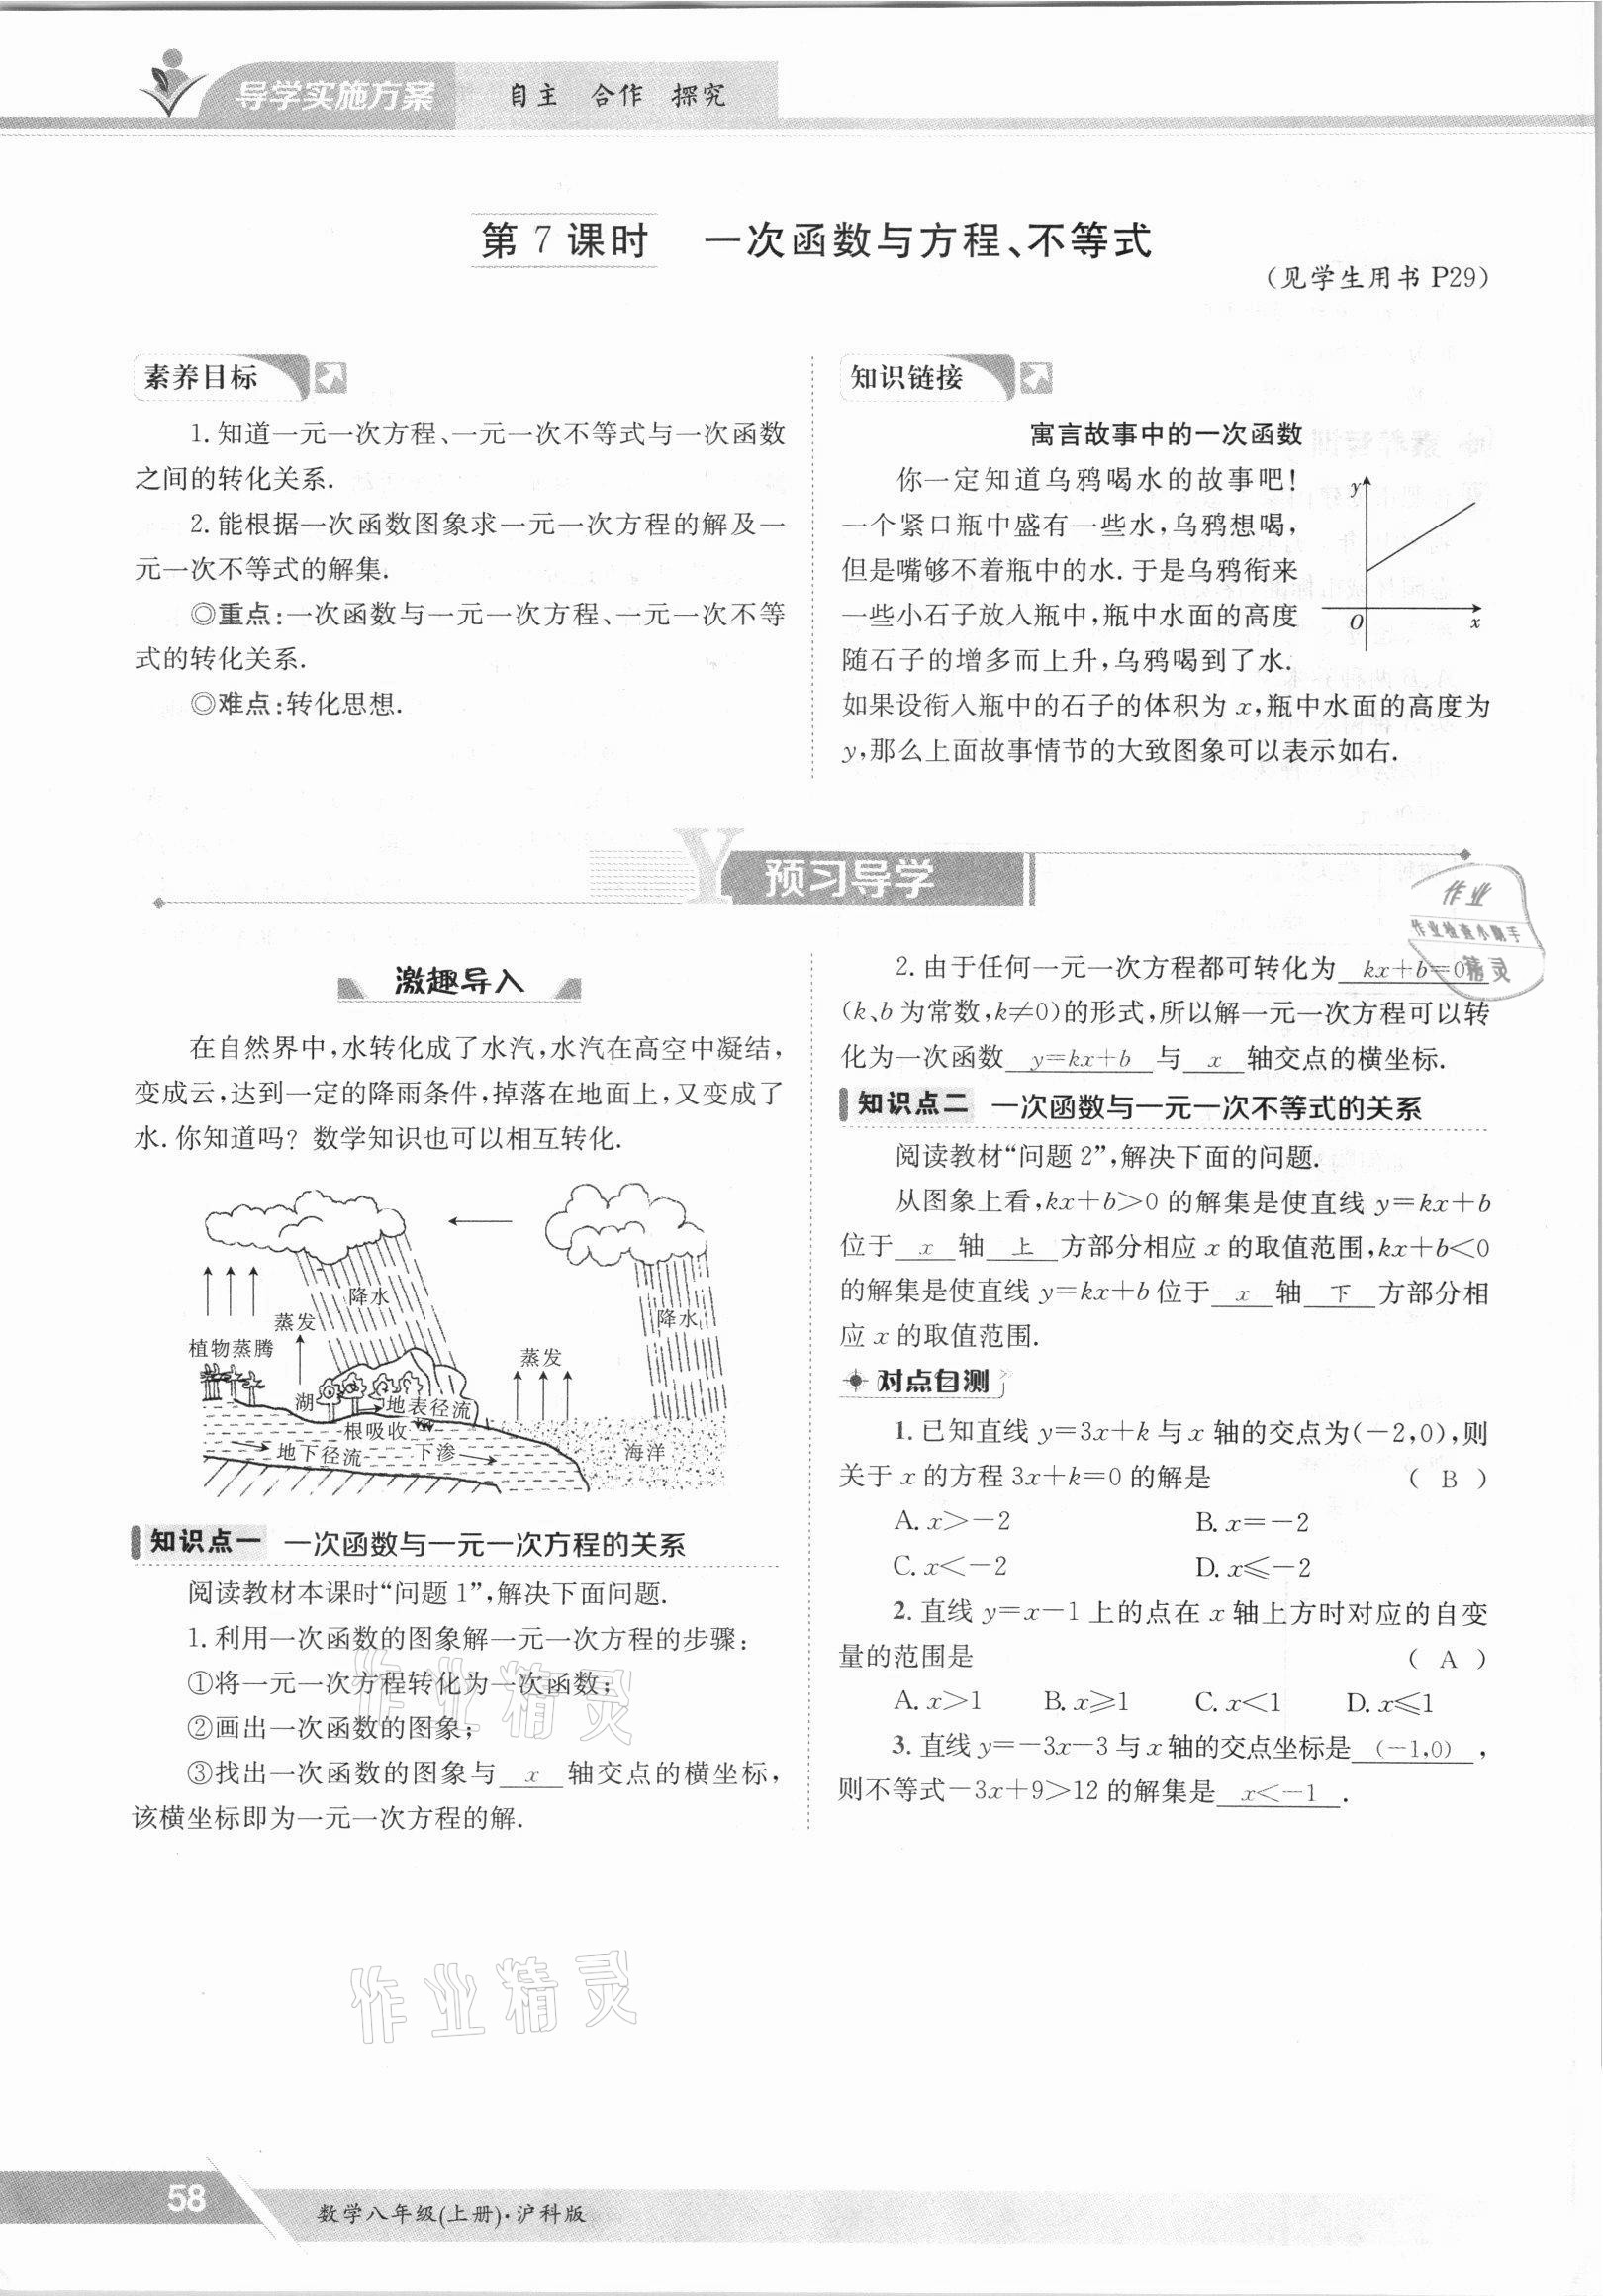 导学实施方案 自主 合作 探究
第7课时 一次函数与方程、不等式
(见学生用书 P29)
素养目标
1. 知道一元一次方程、一元一次不等式与一次函数
之间的转化关系.
2. 能根据一次函数图象求一元一次方程的解及一
元一次不等式的解集.
◎重点:一次函数与一元一次方程、一元一次不等
式的转化关系.
◎难点:转化思想.
知识链接
寓言故事中的一次函数
你一定知道乌鸦喝水的故事吧!
一个紧口瓶中盛有一些水,乌鸦想喝,
但是嘴够不着瓶中的水. 于是乌鸦衔来
一些小石子放入瓶中,瓶中水面的高度
随石子的增多而上升,乌鸦喝到了水.
如果设衔入瓶中的石子的体积为 x,瓶中水面的高度为
y,那么上面故事情节的大致图象可以表示如右.
y
O
x
Y 预习导学
激趣导入
在自然界中,水转化成了水汽,水汽在高空中凝结,
变成云,达到一定的降雨条件,掉落在地面上,又变成了
水. 你知道吗? 数学知识也可以相互转化.
降水
蒸发
降水
植物蒸腾
蒸发
湖
地表径流
根吸收
地下径流
下渗
海洋
知识点一 一次函数与一元一次方程的关系
阅读教材本课时“问题 1”,解决下面问题.
1. 利用一次函数的图象解一元一次方程的步骤:
①将一元一次方程转化为一次函数;
②画出一次函数的图象;
③找出一次函数的图象与 x 轴交点的横坐标,
该横坐标即为一元一次方程的解.
2. 由于任何一元一次方程都可转化为 kx+b=0
(k、b 为常数,k≠0)的形式,所以解一元一次方程可以转
化为一次函数 y=kx+b 与 x 轴交点的横坐标.
知识点二 一次函数与一元一次不等式的关系
阅读教材“问题 2”,解决下面的问题.
从图象上看,kx+b>0 的解集是使直线 y=kx+b
位于 x 轴 上 方部分相应 x 的取值范围,kx+b<0
的解集是使直线 y=kx+b 位于 x 轴 下 方部分相
应 x 的取值范围.
对点自测
1. 已知直线 y=3x+k 与 x 轴的交点为(-2,0),则
关于 x 的方程 3x+k=0 的解是 ( B )
A. x>-2 B. x=-2
C. x<-2 D. x≤-2
2. 直线 y=x-1 上的点在 x 轴上方时对应的自变
量的范围是 ( A )
A. x>1 B. x≥1 C. x<1 D. x≤1
3. 直线 y=-3x-3 与 x 轴的交点坐标是 (-1,0) ,
则不等式-3x+9>12 的解集是 x<-1 .
作业
作业检查小助手
精灵
作业精灵
作业精灵
58
数学八年级(上册)·沪科版